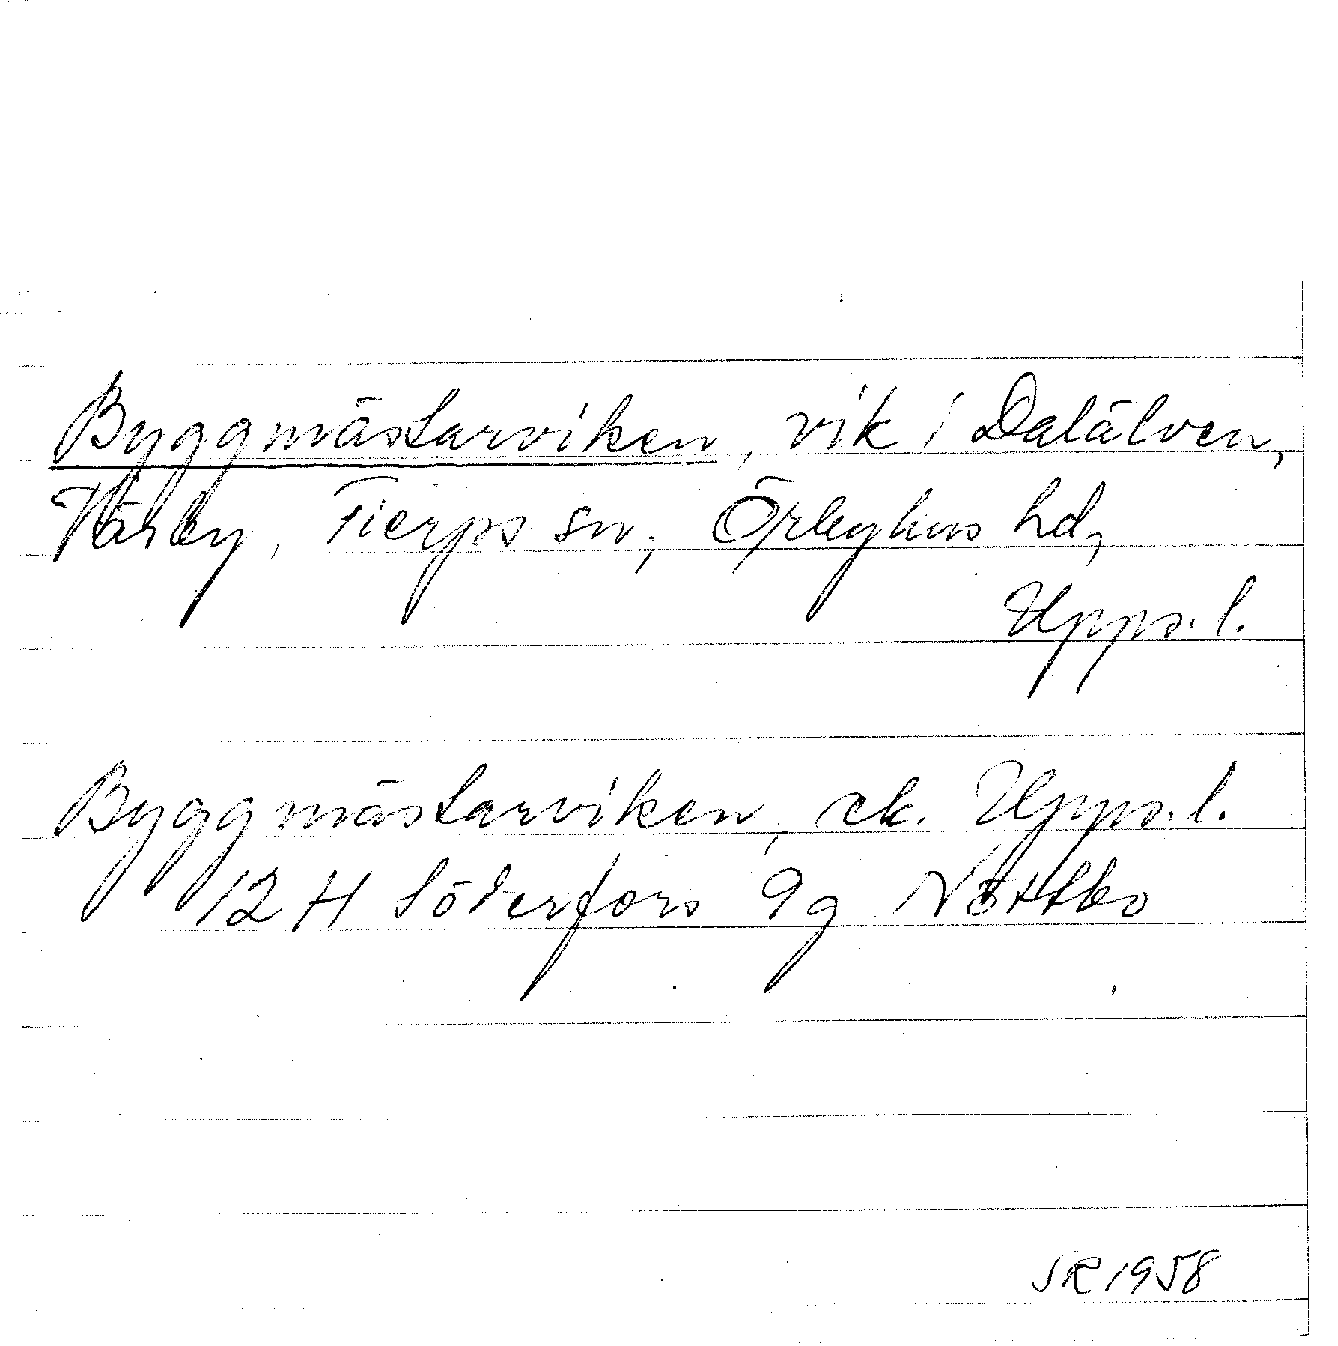 Byggmästarviken, vik i Dalälven,
Tierps sn, Örbyhus hd,
Upps. l.
Byggmästarviken, ek. Upps. l.
12 H Söderfors 9g Nöttbo
SR 1958